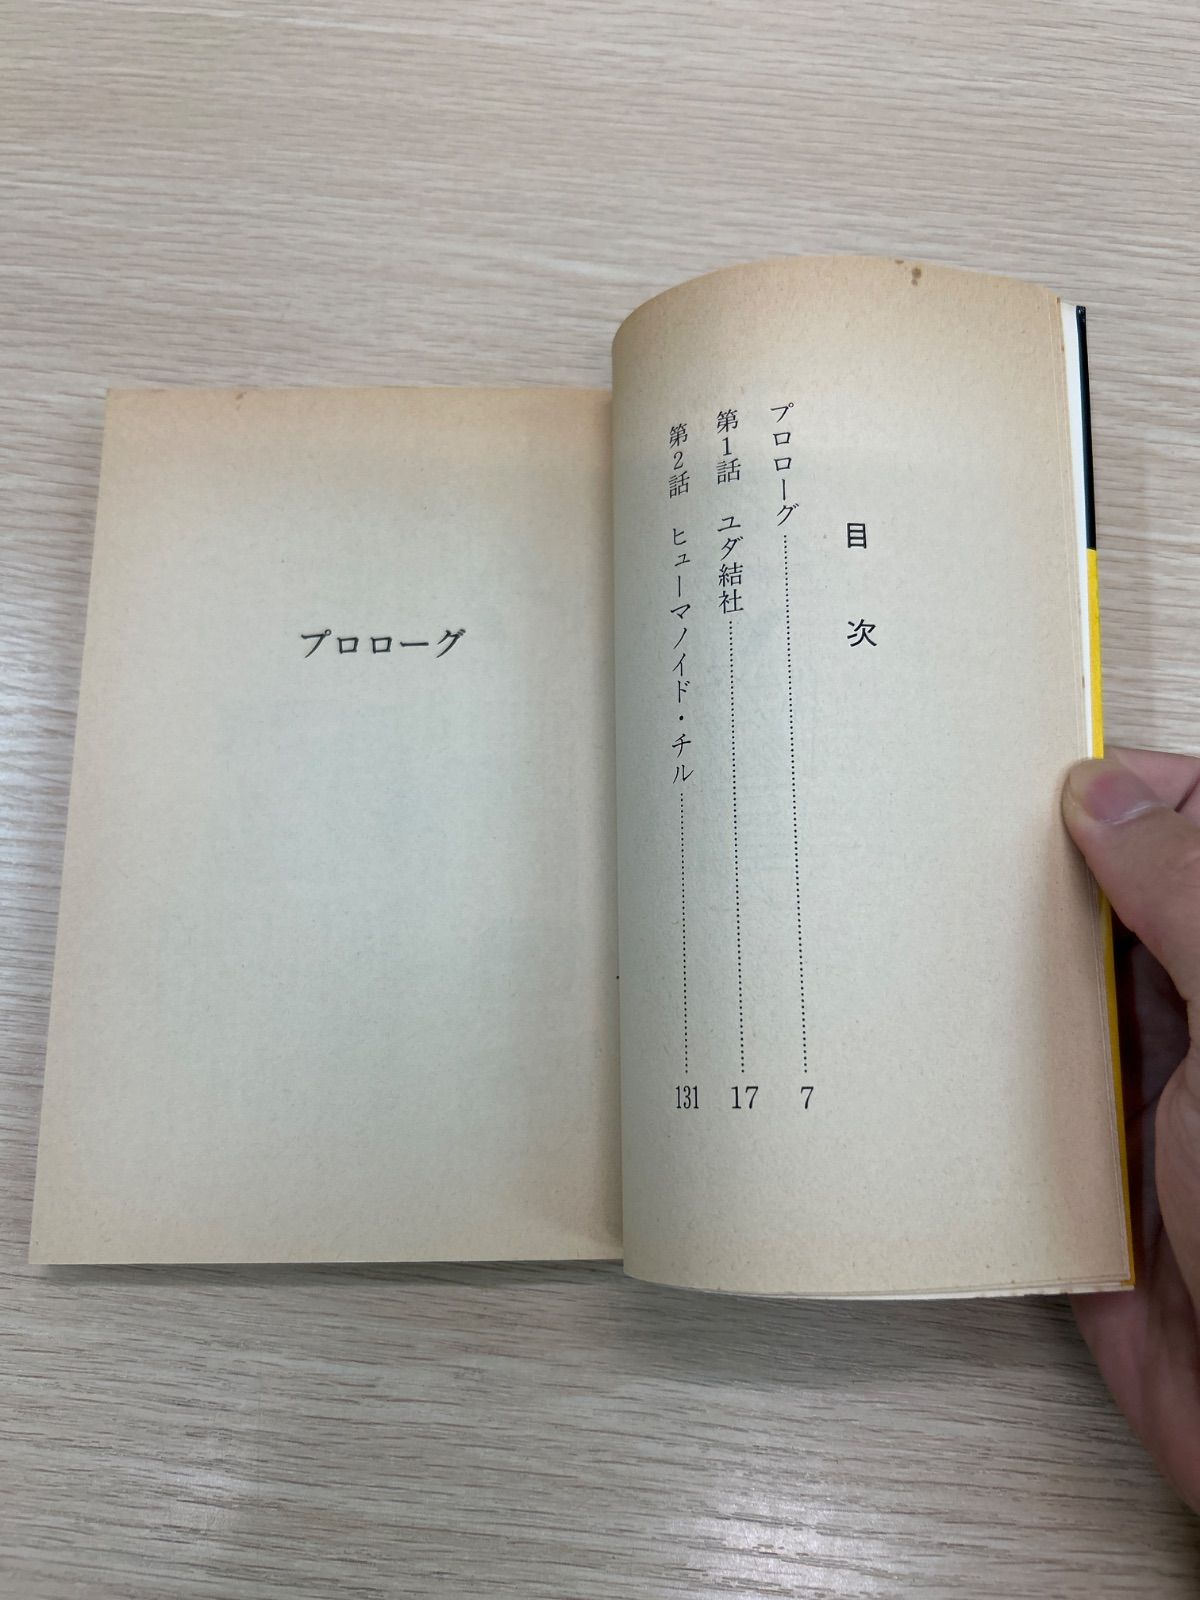 目次
プロローグ……7
第1話　ユダ結社……17
第2話　ヒューマノイド・チル……131
プロローグ